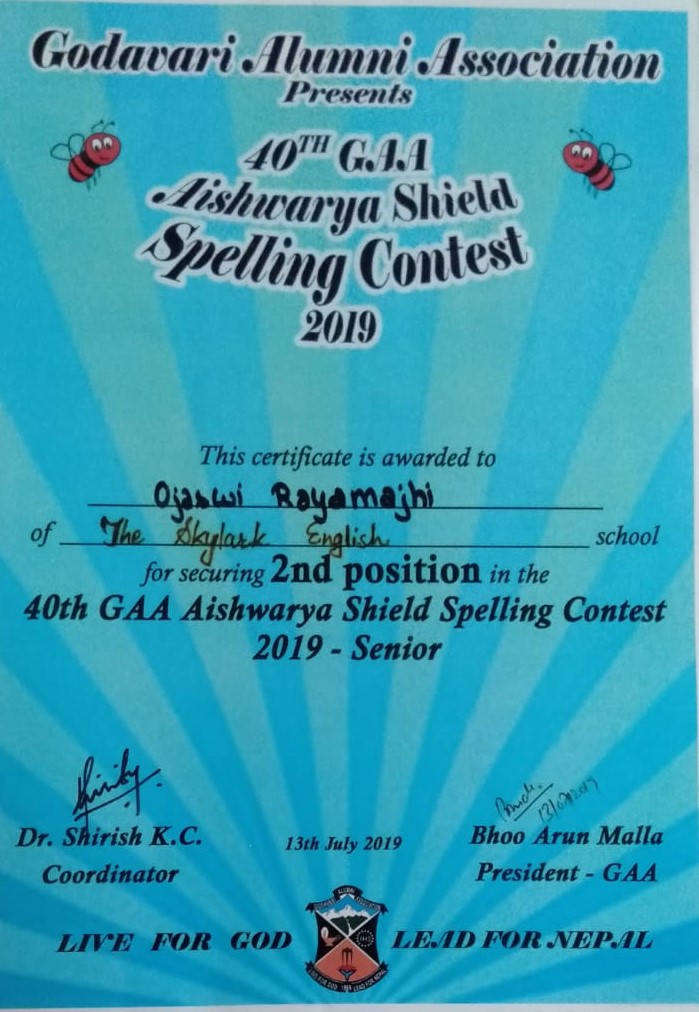 Godavari Alumni Association
Presents
40TH GAA
Aishwarya Shield
Spelling Contest
2019
This certificate is awarded to
Ojaswi Rayamajhi
of The Skylark English school
for securing 2nd position in the
40th GAA Aishwarya Shield Spelling Contest
2019 - Senior
13/07/2019
Dr. Shirish K.C. 13th July 2019 Bhoo Arun Malla
Coordinator President - GAA
LIVE FOR GOD LEAD FOR NEPAL